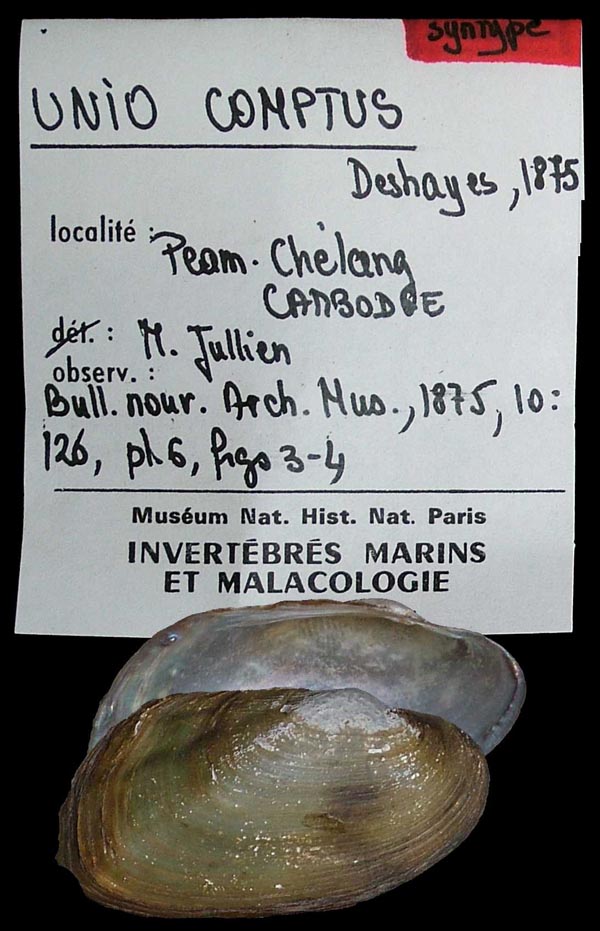 syntype
UNIO COMPTUS
Deshayes, 1875
localité : Peam-Chelang
CAMBODGE
dét. : M. Jullien
observ. :
Bull. nouv. Arch. Mus., 1875, 10:
126, pl. 6, figs 3-4
Muséum Nat. Hist. Nat. Paris
INVERTÉBRÉS MARINS
ET MALACOLOGIE